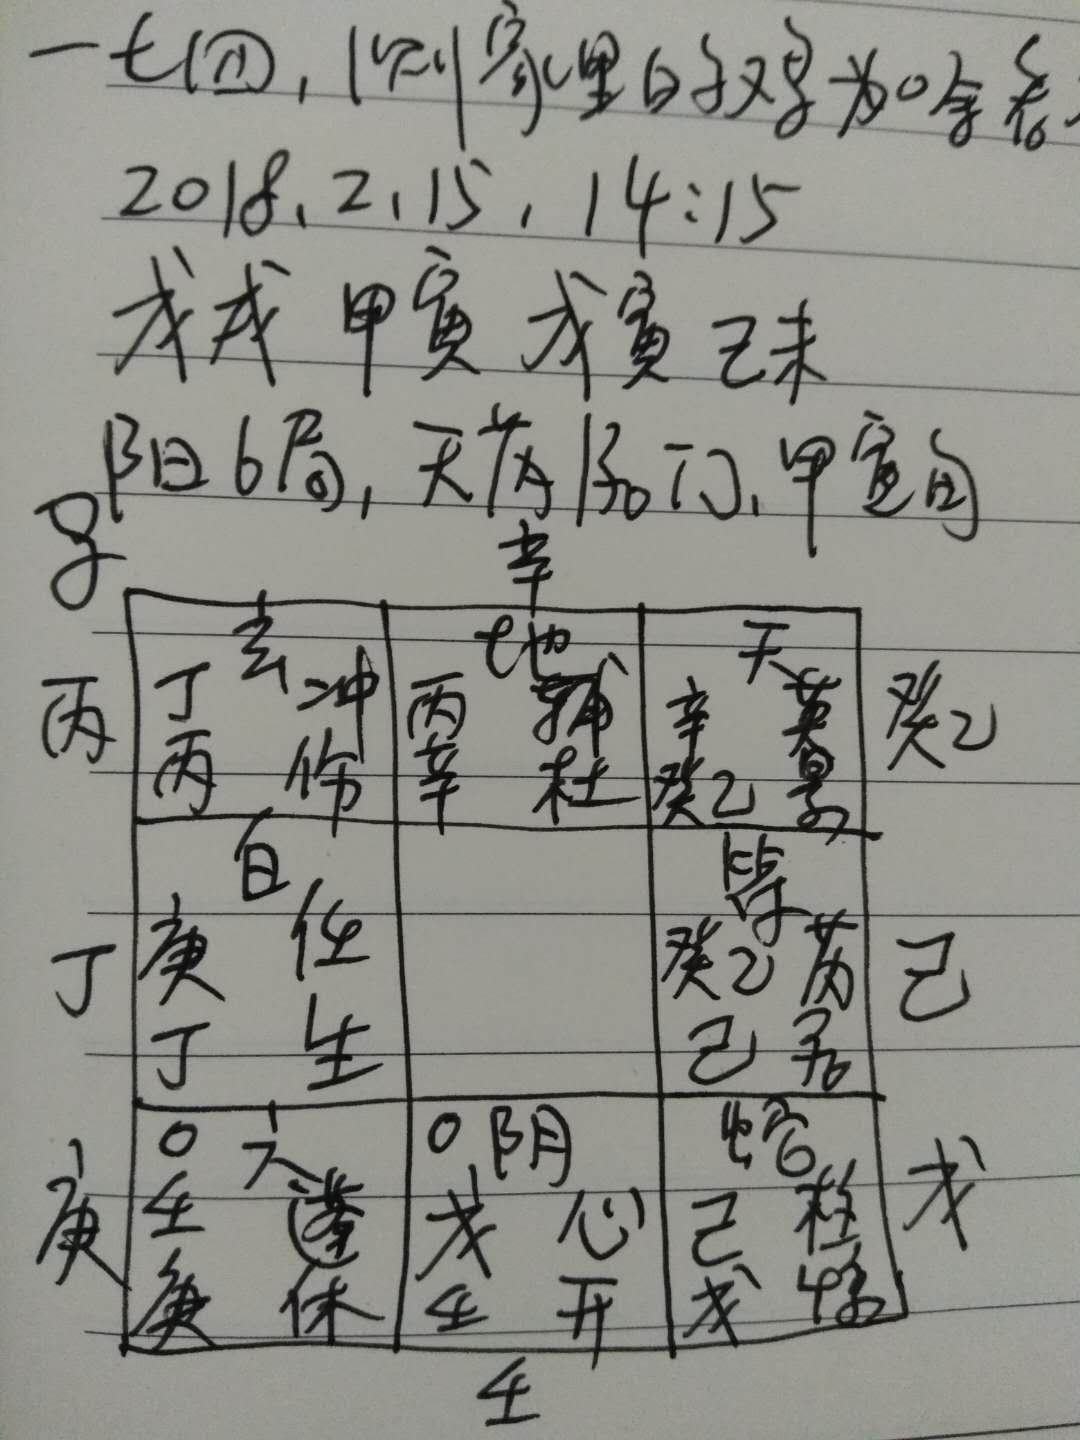 一七四,测家里的鸡为啥丢
2018.2.15,14:15
戊戌 甲寅 戊寅 己未
阳6局,天芮死门,甲寅旬
马
辛
玄 地 天
丁 冲 丙 辅 辛 英
丙 丙 伤 辛 杜 癸乙 景 癸乙
白 阴
丁 庚 任 癸乙 芮 己
丁 生 己 死
〇 六 〇 阴 蛇
壬 蓬 戊 心 己 柱
庚 庚 休 壬 开 戊 惊 戊
壬